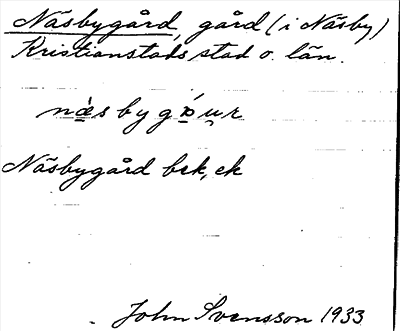 Näsbygård, gård (i Näsby)
Kristianstads stad o. län.
Näsbygård bek, ek
John Svensson 1933